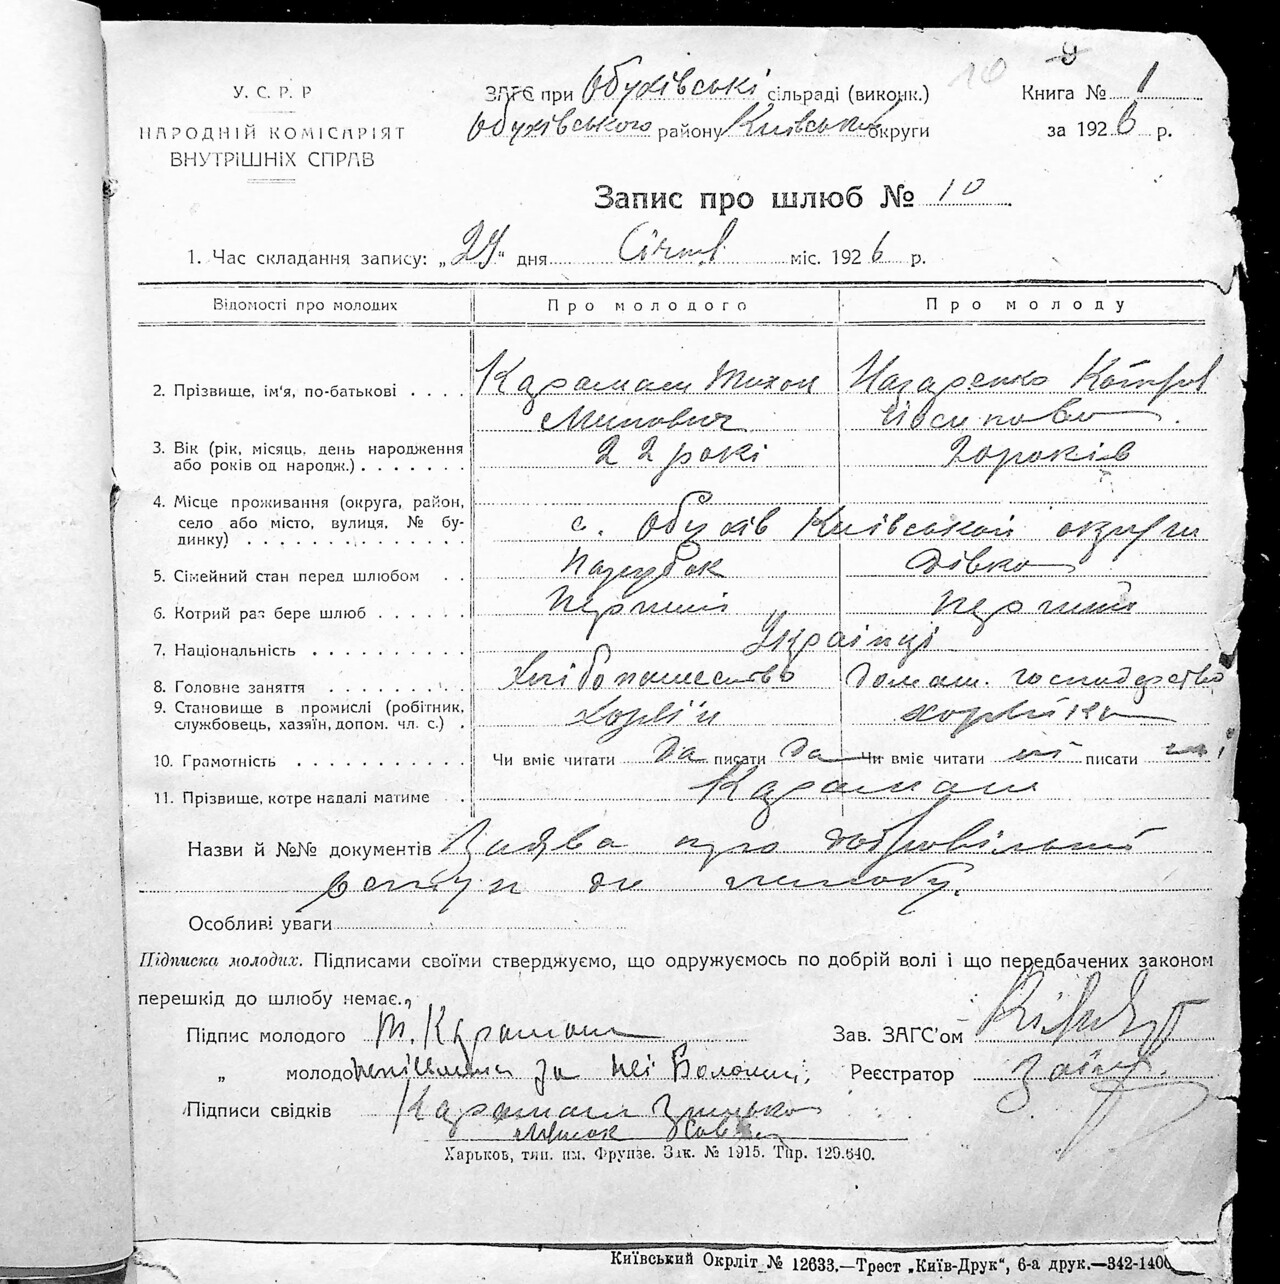 У. С. Р. Р
НАРОДНІЙ КОМІСАРІЯТ
ВНУТРІШНІХ СПРАВ
10
ЗАГС при Обухівські сільраді (виконк.)
Обухівського району Київської округи
Книга № 1
за 1926 р.
Запис про шлюб № 10
1. Час складання запису: „29“ дня Січня міс. 1926 р.
Відомості про молодих Про молодого Про молоду
2. Прізвище, ім'я, по-батькові . . . . Тихон Назаренко
Йосипова
3. Вік (рік, місяць, день народження 22 рокі 20 років
або років од народж.) . . . . . . .
4. Місце проживання (округа, район,
село або місто, вулиця, № бу- с. Обухів Київської округи
динку) . . . . . . . . . . . . .
5. Сімейний стан перед шлюбом . . Парубок Дівка
6. Котрий раз бере шлюб . . . . . . Перший Перший
7. Національність . . . . . . . . . . Українці
8. Головне заняття . . . . . . . . Хлібопашество Домаш. господарство
9. Становище в промислі (робітник,
службовець, хазяїн, допом. чл. с.) .
10. Грамотність . . . . . . . . . . . Чи вміє читати да писати да Чи вміє читати ні писати ні
11. Прізвище, котре надалі матиме .
Назви й №№ документів Заява про добровільний
вступ до шлюбу.
Особливі уваги
Підписка молодих. Підписами своїми стверджуємо, що одружуємось по добрій волі і що передбачених законом
перешкід до шлюбу немає.
Підпис молодого Т. Зав. ЗАГС'ом
„ молодої за неі Реєстратор
Підписи свідків
Харьков, тип. им. Фрунзе. Зак. № 1915. Тир. 129.640.
Київський Окрліт № 12633.—Трест „Київ-Друк“, 6-а друк.—342-1400